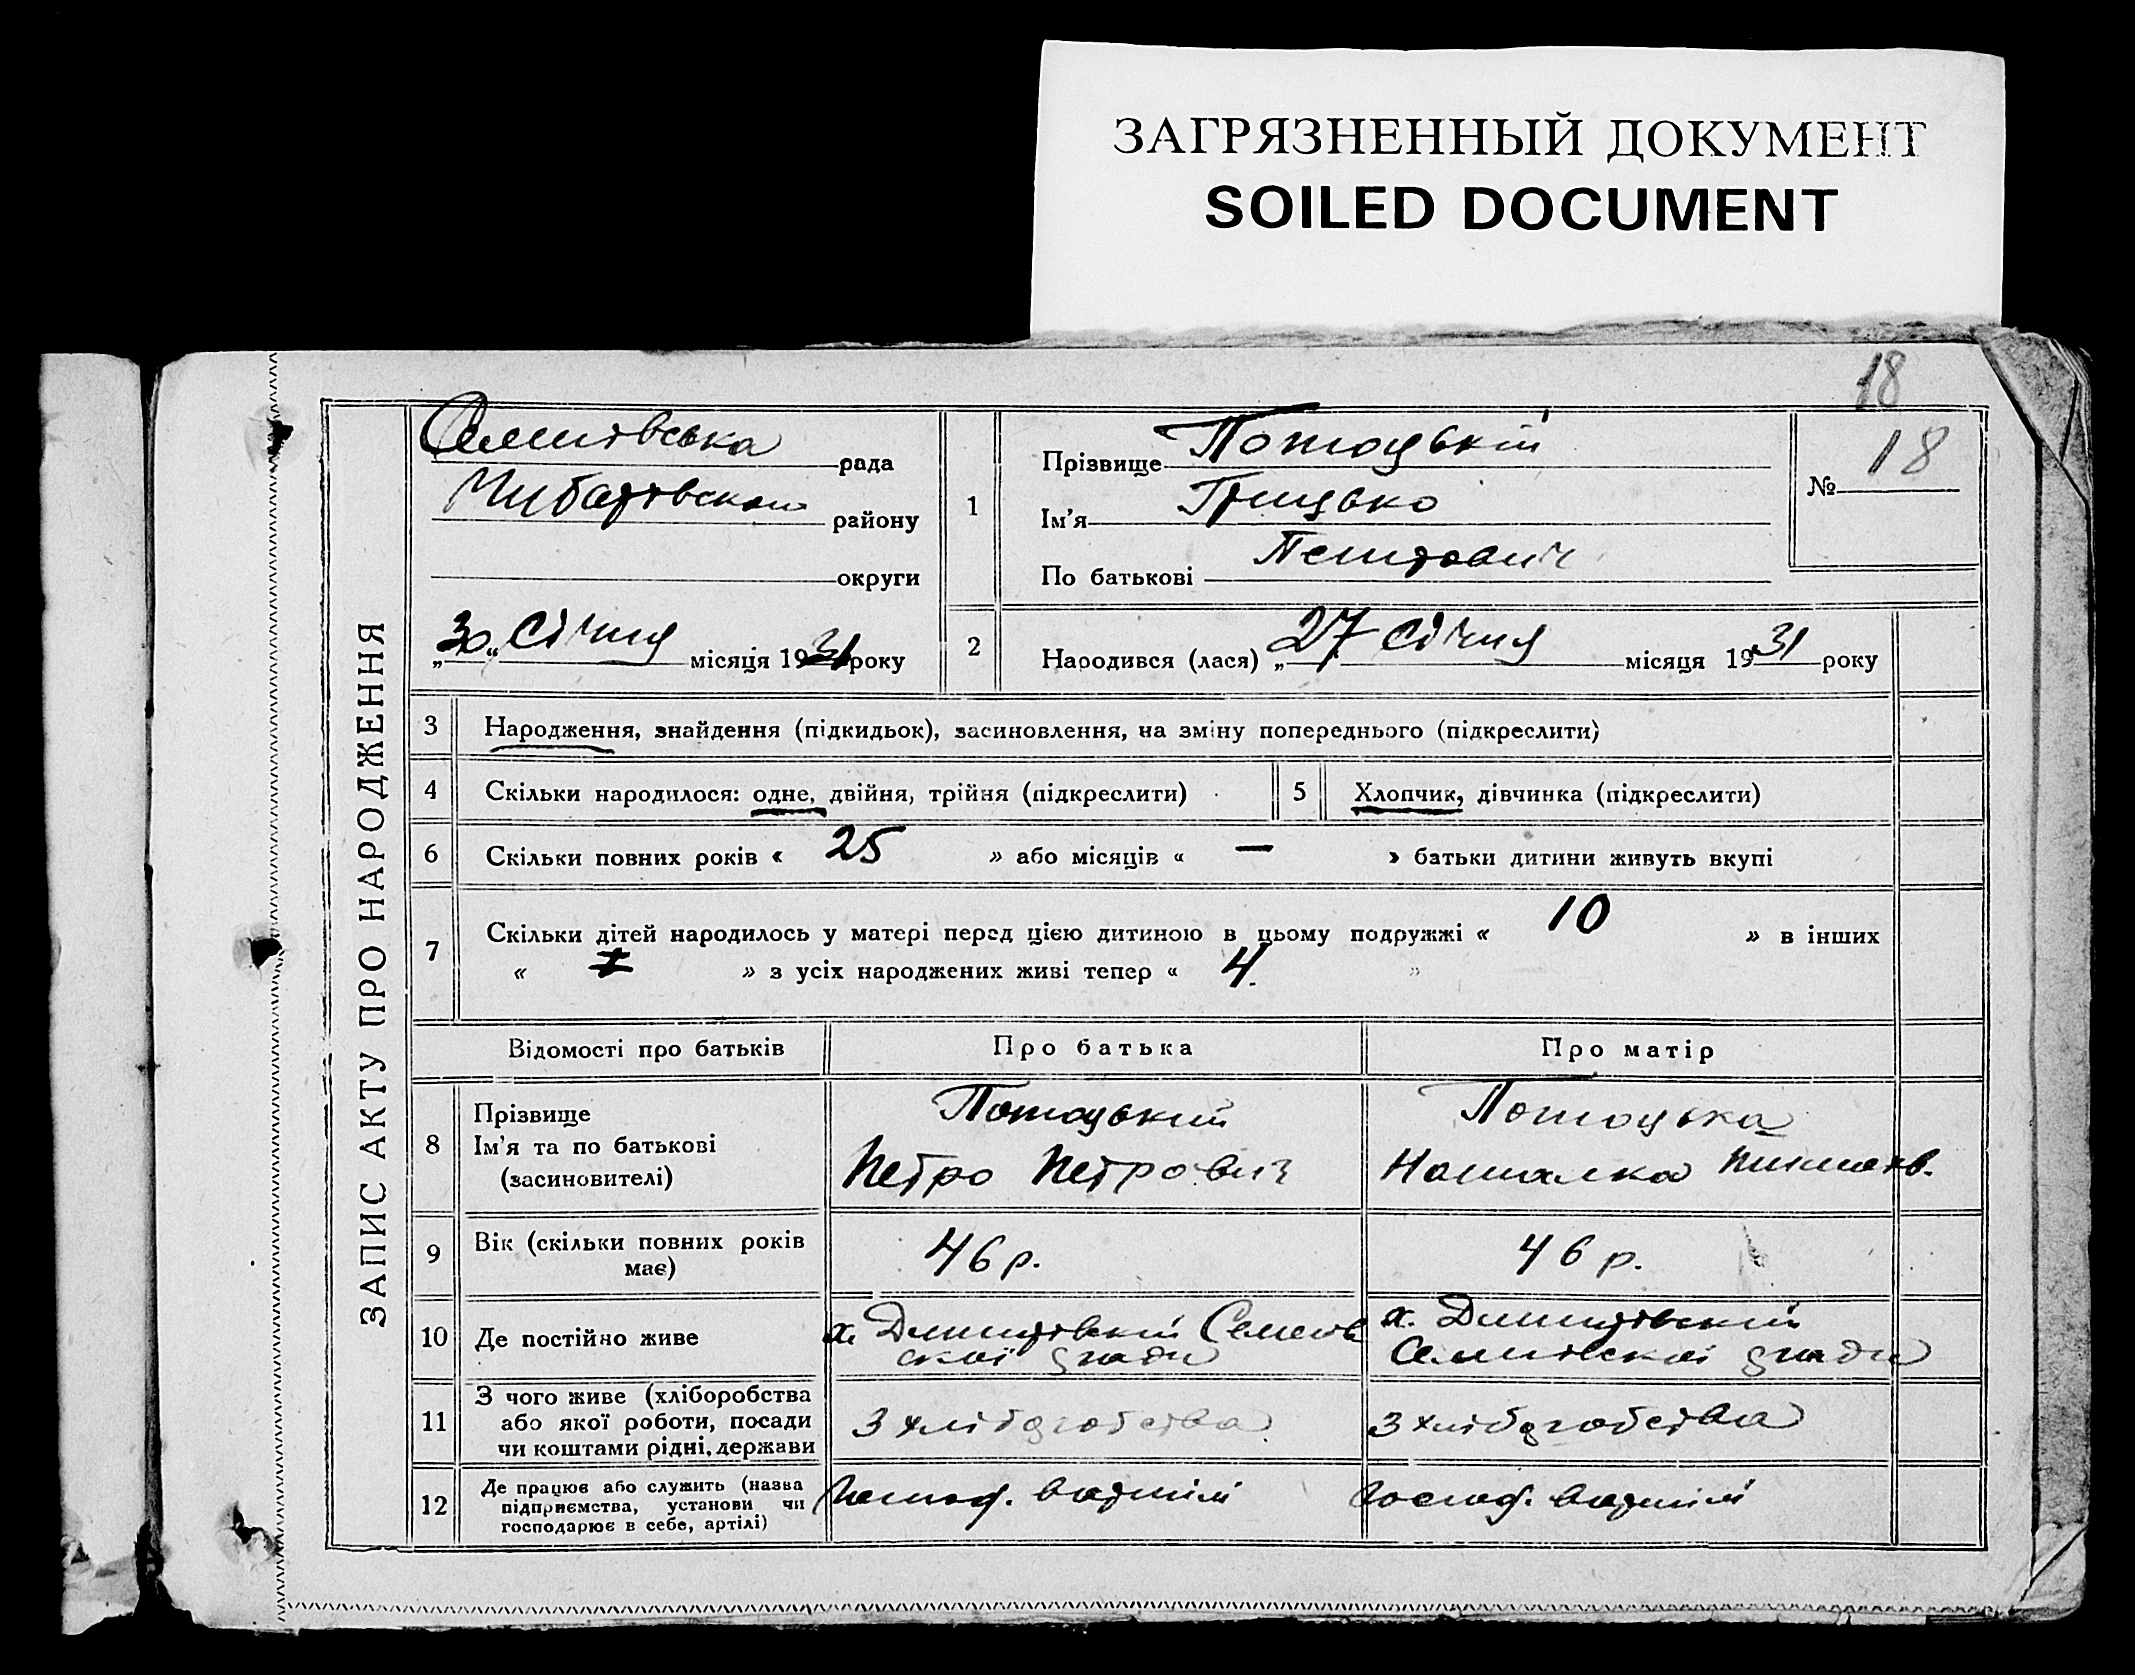 ЗАГРЯЗНЕННЫЙ ДОКУМЕНТ
SOILED DOCUMENT
18
ЗАПИС АКТУ ПРО НАРОДЖЕННЯ
рада
району
округи
„30“ Січня місяця 1931 року
1
Прізвище Потоцький
Ім’я Грицько
По батькові Петрович
№ 18
2
Народився (лася) „27 Січня місяця 1931 року
3 Народження, знайдення (підкидьок), засиновлення, на зміну попереднього (підкреслити)
4 Скільки народилося: одне, двійня, трійня (підкреслити)
5 Хлопчик, дівчинка (підкреслити)
6 Скільки повних років « 25 » або місяців « — » батьки дитини живуть вкупі
7 Скільки дітей народилось у матері перед цією дитиною в цьому подружжі « 10 » в інших
« » з усіх народжених живі тепер « 4. »
Відомості про батьків
Про батька
Про матір
8 Прізвище
Ім’я та по батькові
(засиновителі)
Потоцький
Петро Петрович
Потоцька
9 Вік (скільки повних років
має)
46 р.
46 р.
10 Де постійно живе
х. Семенів
ської ради
х.
ради
11 З чого живе (хліборобства
або якої роботи, посади
чи коштами рідні, держави
З хліборобства
З хліборобства
12 Де працює або служить (назва
підприємства, установи чи
господарює в себе, артілі)